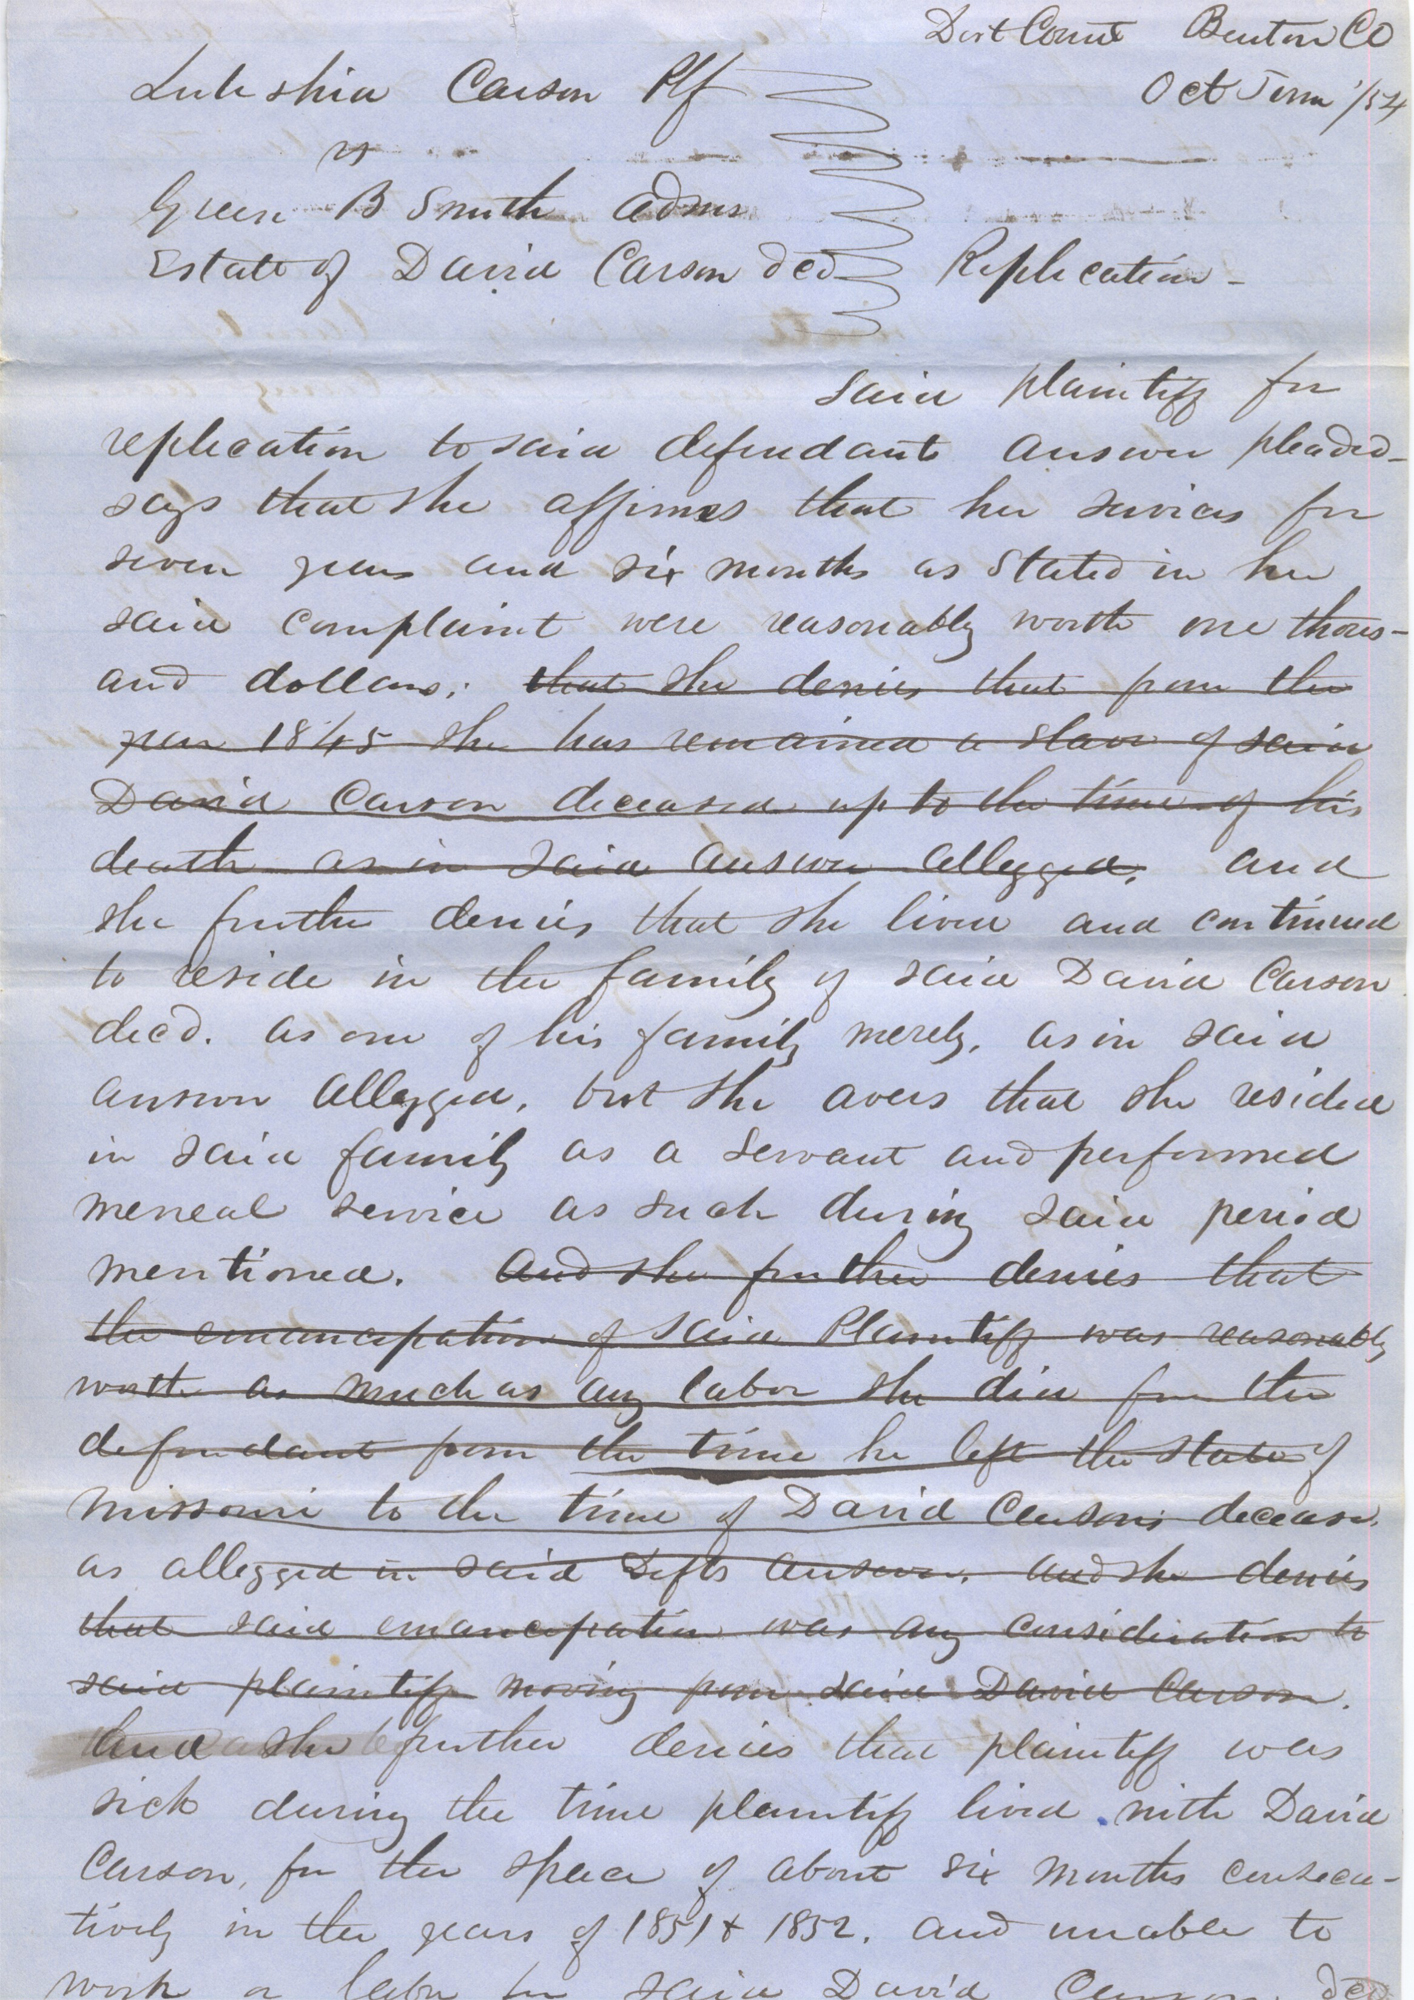 Dist Court Benton Co
Oct Term /54
Luteshia Carson Plf
vs
Green B Smith Admr
Estate of David Carson decd Replication -
Said plaintiff for
replication to said defendants answer pleaded
says that she affirmes that her services for
seven years and six months as stated in her
said complaint were reasonably worth one thous-
and dollars; that she denies that from the
year 1845 she has remained a slave of said
David Carson deceased up to the time of his
death as in said answer allegged, and
she further denies that she lived and continued
to reside in the family of said David Carson
decd. as one of his family merely, as in said
answer allegged, but she avers that she resided
in said family as a servant and performed
meneal service as such during said period
mentioned. And she further denies that
the emancipation of said Plaintiff was reasonably
worth as much as any labor she did for the
defendant from the time he left the State of
Missouri to the time of David Carsons decease
as allegged in said Defts answer. and she denies
that said emancipation was any consideration to
said plaintiff moving from said David Carson.
And she further denies that plaintiff was
sick during the time plaintiff lived with David
Carson, for the space of about six months consecu-
tively in the years of 1851 & 1852. and unable to
work or labor for said David Carson decd